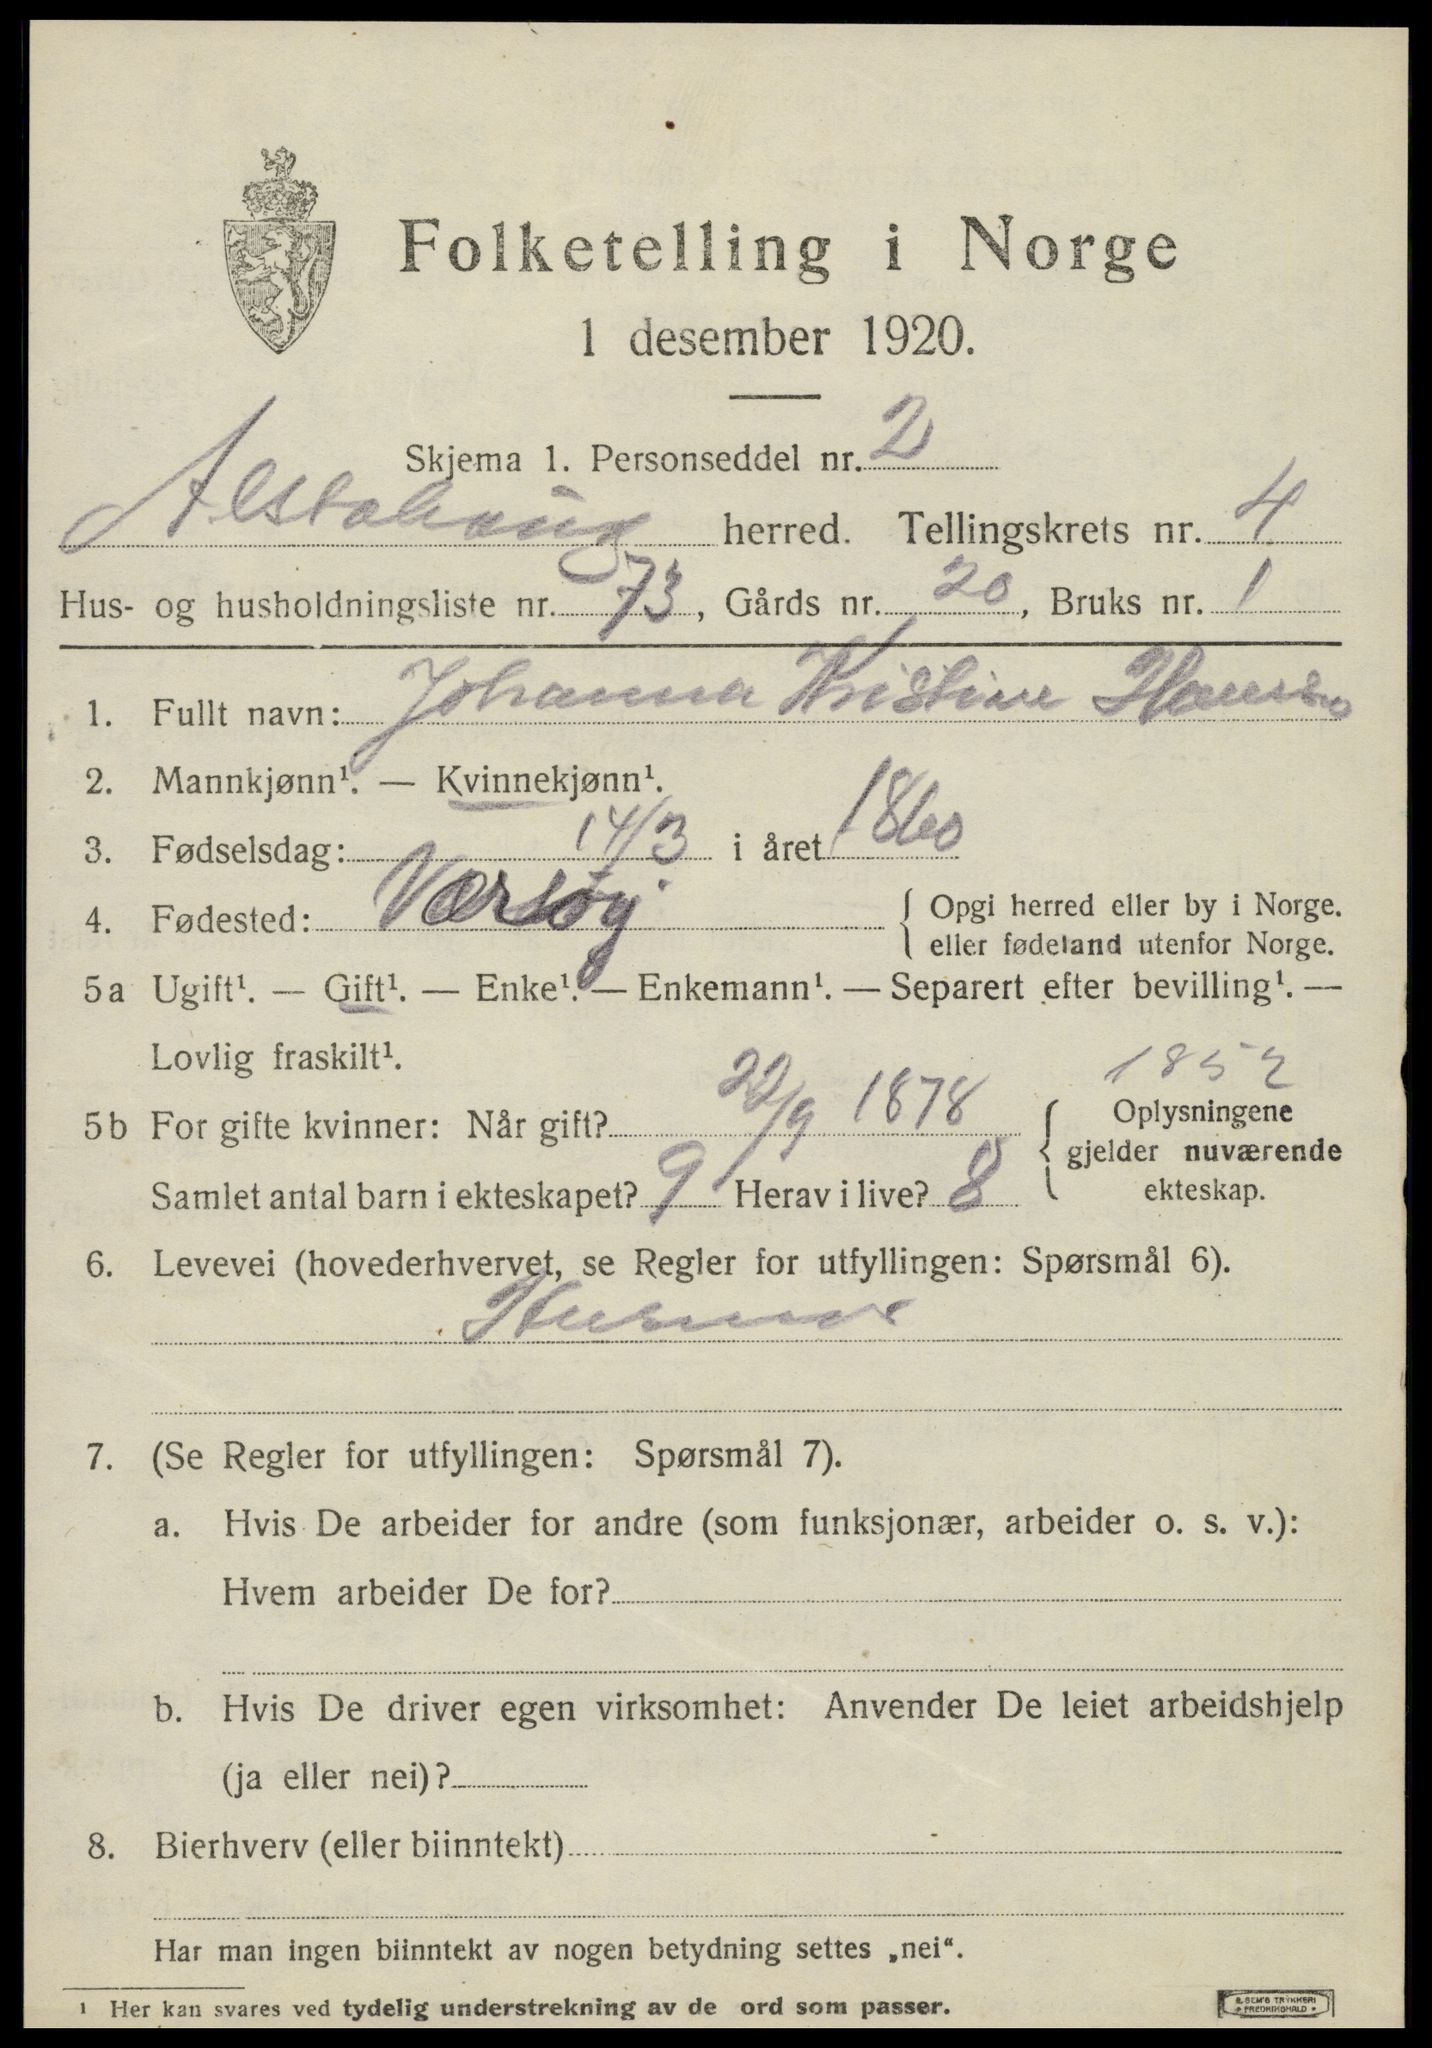 Folketelling i Norge
1 desember 1920.
Skjema 1. Personseddel nr. 2
Alstahaug herred. Tellingskrets nr. 4
Hus- og husholdningsliste nr. 73, Gårds nr. 20, Bruks nr. 1
1. Fullt navn: Johanna Kristine Hansen
2. Mannkjønn¹. — Kvinnekjønn¹.
3. Fødselsdag: 14/3 i året 1860
4. Fødested: Værøy { Opgi herred eller by i Norge.
eller fødeland utenfor Norge.
5a Ugift¹. — Gift¹. — Enke¹. — Enkemann¹. — Separert efter bevilling¹. —
Lovlig fraskilt¹.
1852
5b For gifte kvinner: Når gift? 22/9 1878 { Oplysningene
gjelder nuværende
Samlet antal barn i ekteskapet? 9 Herav i live? 8 ekteskap.
6. Levevei (hovederhvervet, se Regler for utfyllingen: Spørsmål 6).
Husmor
7. (Se Regler for utfyllingen: Spørsmål 7).
a. Hvis De arbeider for andre (som funksjonær, arbeider o. s. v.):
Hvem arbeider De for?
b. Hvis De driver egen virksomhet: Anvender De leiet arbeidshjelp
(ja eller nei)?
8. Bierhverv (eller biinntekt)
Har man ingen biinntekt av nogen betydning settes „nei“.
¹ Her kan svares ved tydelig understrekning av de ord som passer.
E. SEM'S TRYKKERI
FREDRIKSHALD